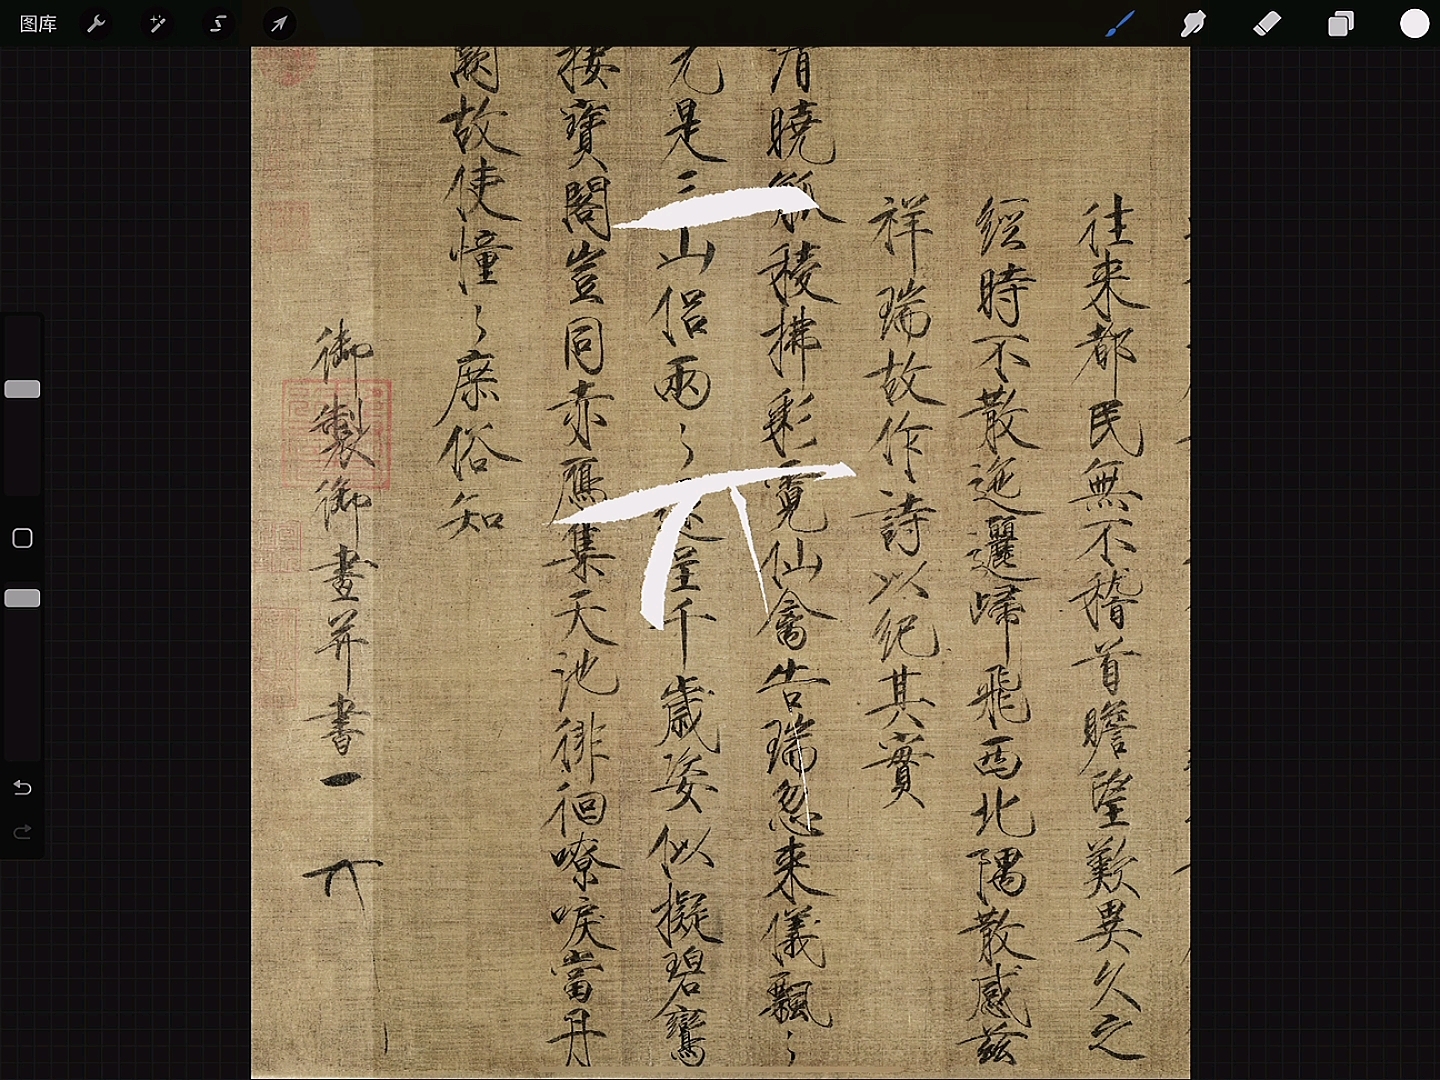 图库
往来都民無不稽首瞻望歎異久之
經時不散迤邐歸飛西北隅散感兹
祥瑞故作詩以紀其實
清曉觚稜拂彩霓仙禽告瑞忽来儀飄〻
元是三山侣兩〻還呈千歲姿似擬碧鸞
棲寶閣豈同赤鴈集天池徘徊嘹唳當丹
闕故使憧〻庶俗知
御製御畫并書